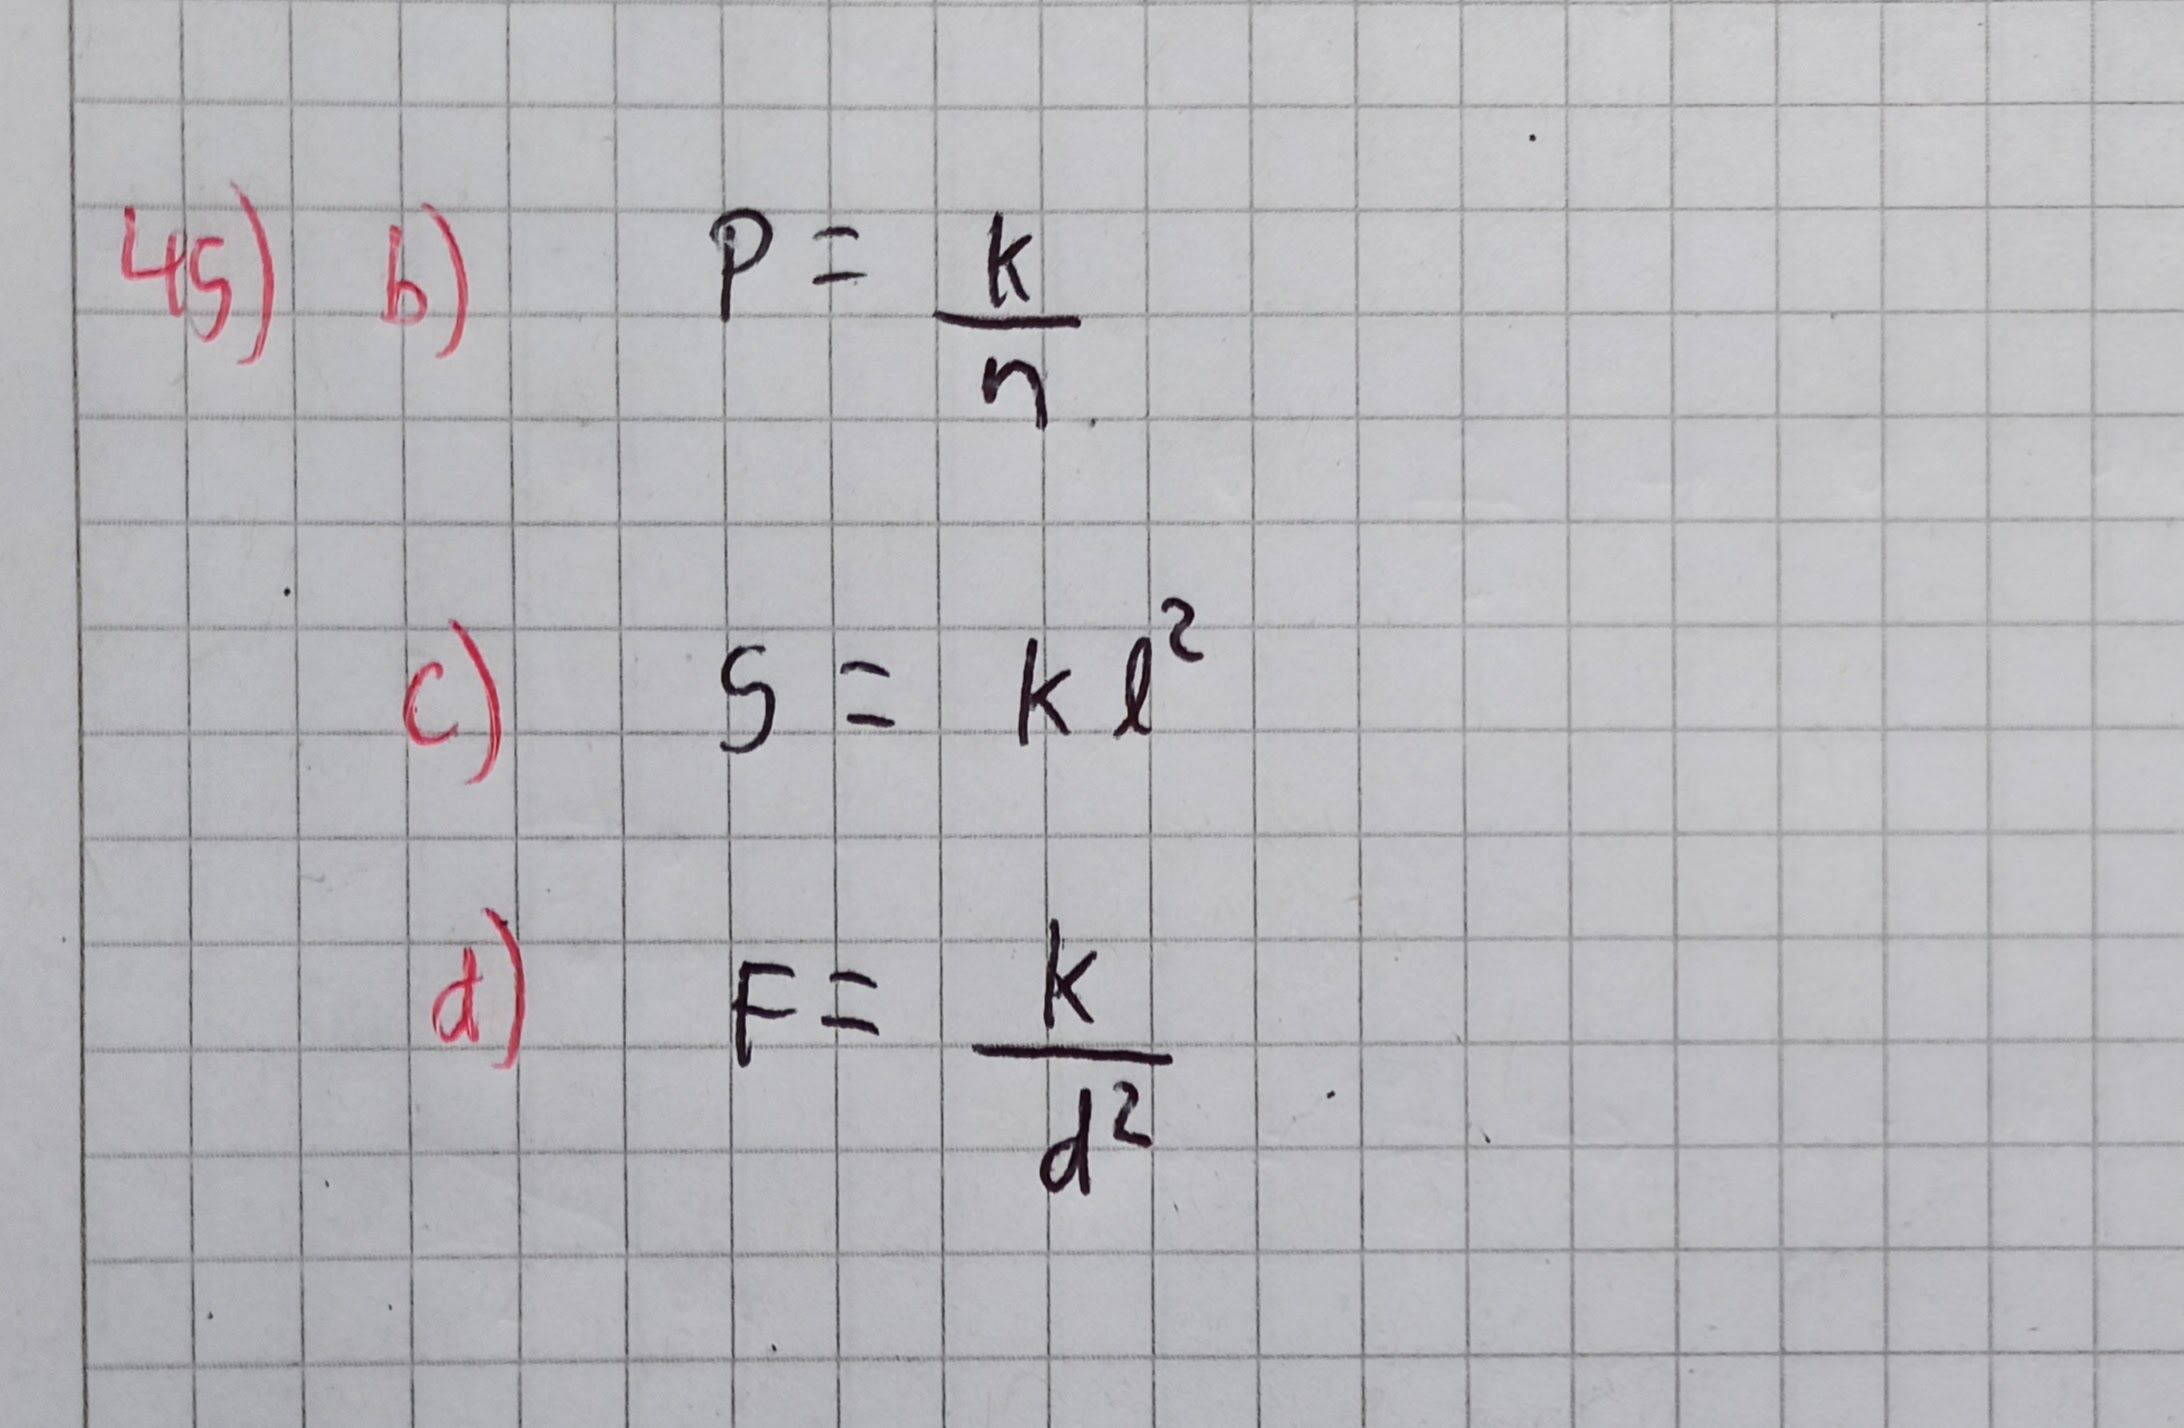 45) b) P = k/n
c) S = k l²
d) F = k/d²